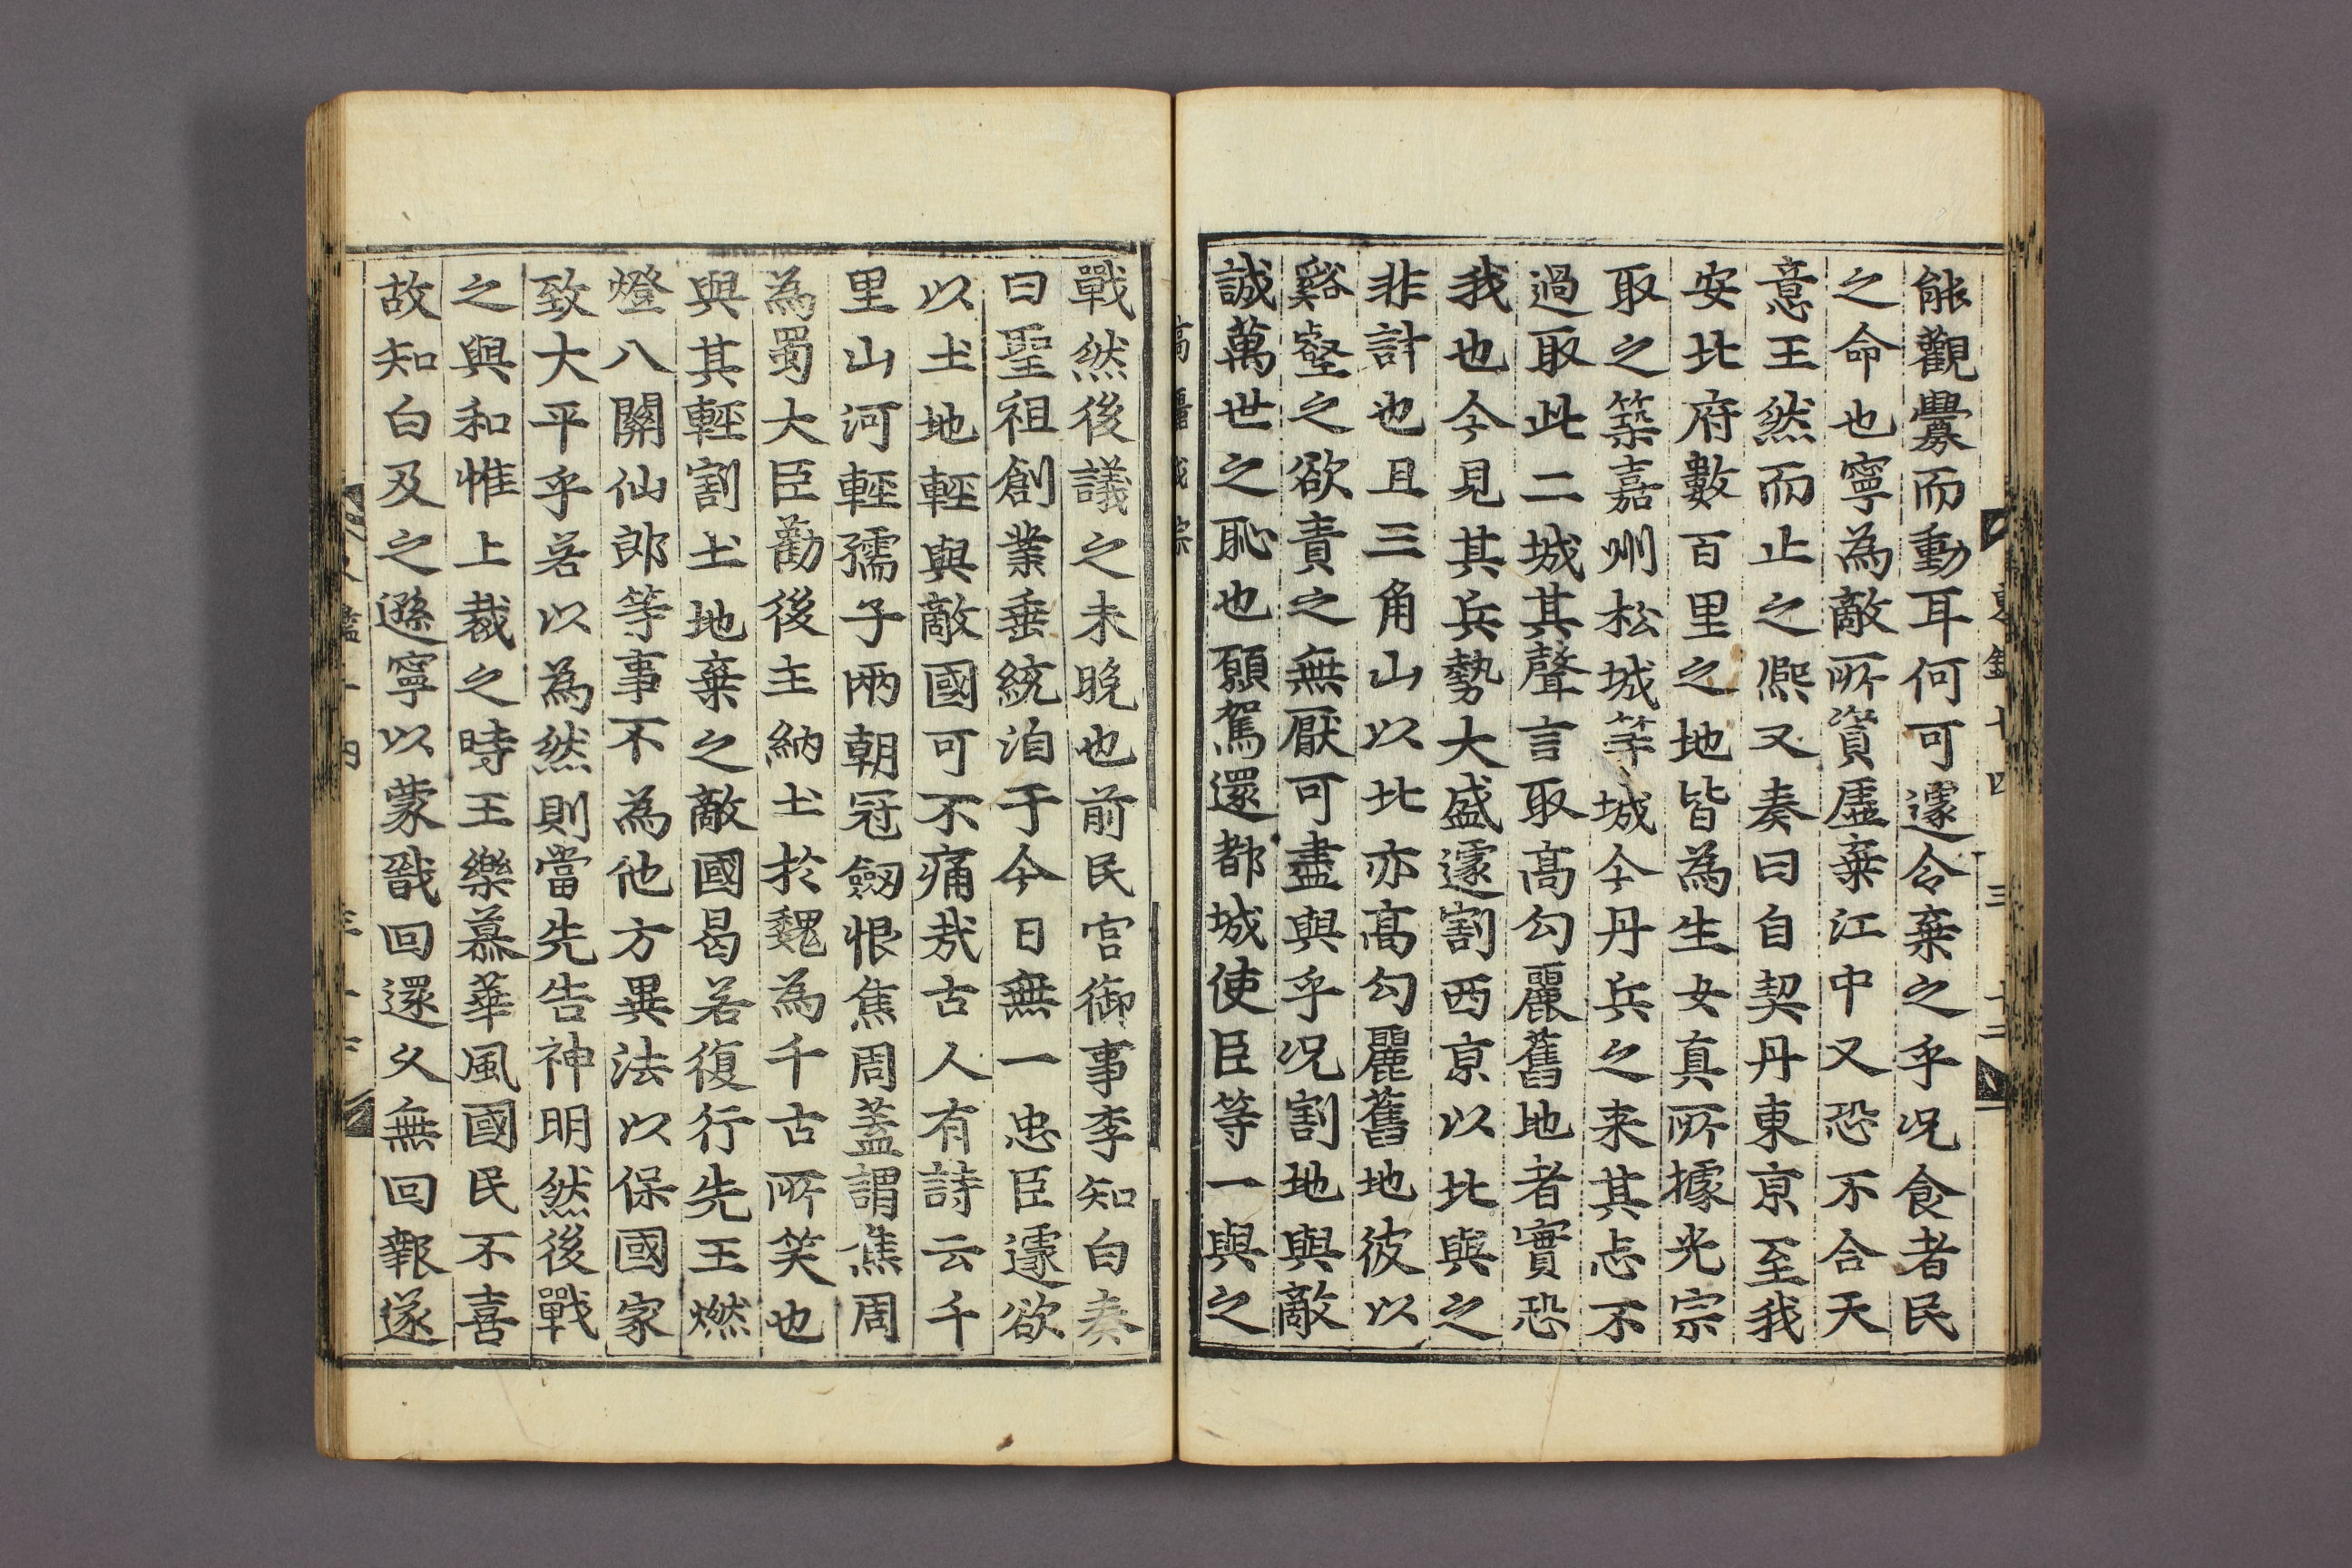 能觀釁而動耳何可遽令棄之乎况食者民
之命也寧為敵所資虛棄江中又恐不合天
意王然而止之熈又奏曰自契丹東京至我
安北府數百里之地皆為生女真所據光宗
取之築嘉州松城等城今丹兵之来其志不
過取此二城其聲言取高勾麗舊地者實恐
我也今見其兵勢大盛遽割西京以北與之
非計也且三角山以北亦高勾麗舊地彼以
谿壑之欲責之無厭可盡與乎况割地與敵
誠萬世之恥也願駕還都城使臣等一與之
戰然後議之未晚也前民官御事李知白奏
曰聖祖創業垂統洎于今日無一忠臣遽欲
以土地輕與敵國可不痛㢤古人有詩云千
里山河輕孺子兩朝冠劒恨焦周盖謂焦周
為蜀大臣勸後主納土於魏為千古所笑也
與其輕割土地棄之敵國曷若復行先王燃
燈八關仙郎等事不為他方異法以保國家
致大平乎若以為然則當先告神明然後戰
之與和惟上裁之時王樂慕華風國民不喜
故知白及之遜寧以蒙戩回還久無回報遂